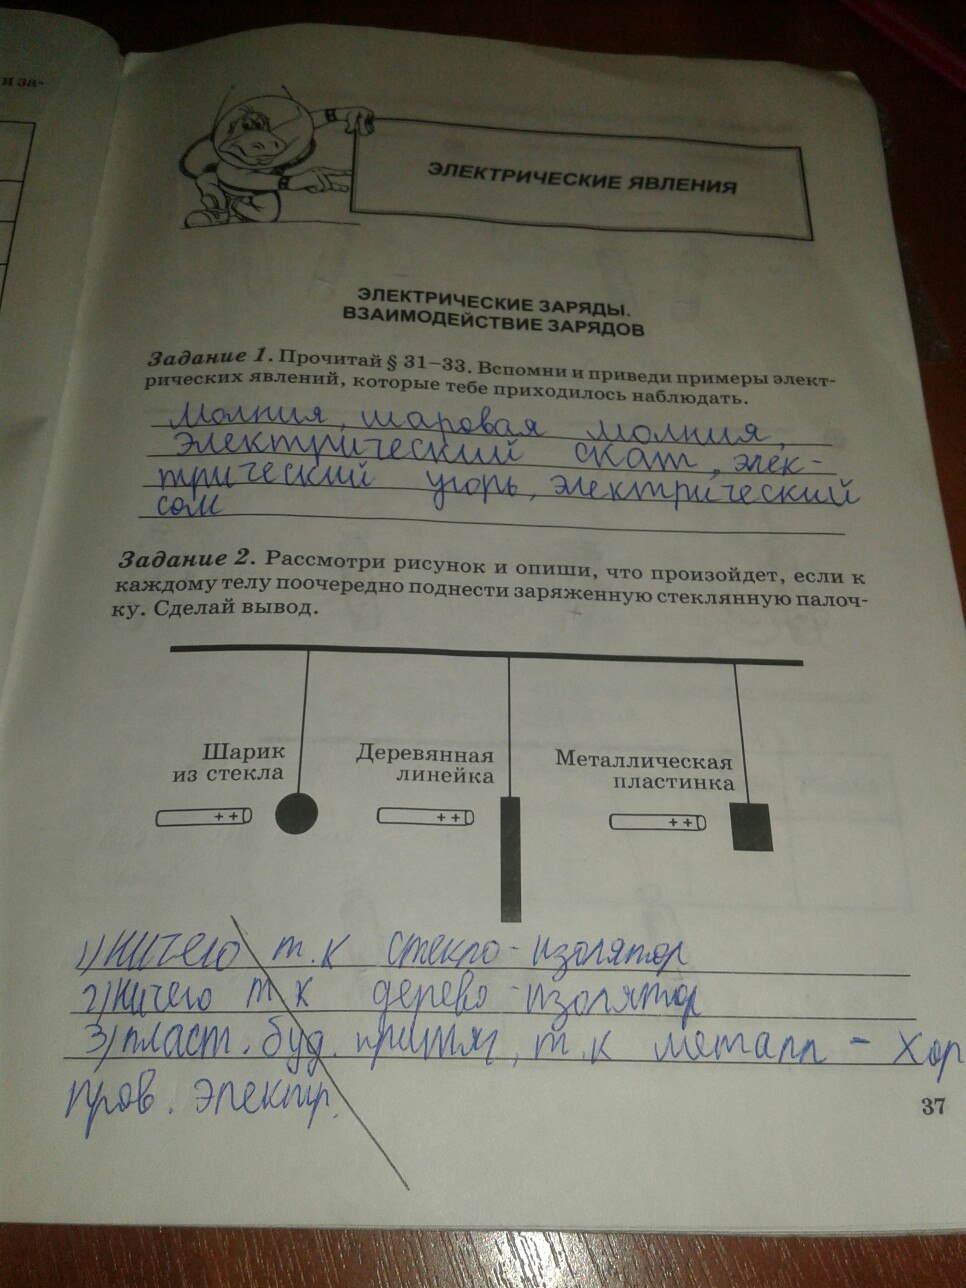 и за-
ЭЛЕКТРИЧЕСКИЕ ЯВЛЕНИЯ
ЭЛЕКТРИЧЕСКИЕ ЗАРЯДЫ.
ВЗАИМОДЕЙСТВИЕ ЗАРЯДОВ
Задание 1. Прочитай § 31–33. Вспомни и приведи примеры элект-
рических явлений, которые тебе приходилось наблюдать.
Молния, шаровая молния,
Электрический скат, элек-
трический угорь, электрический
сом
Задание 2. Рассмотри рисунок и опиши, что произойдет, если к
каждому телу поочередно поднести заряженную стеклянную палоч-
ку. Сделай вывод.
Шарик
из стекла
Деревянная
линейка
Металлическая
пластинка
++
++
++
1) Ничего т.к стекло - изолятор
2) Ничего т к дерево - изолятор
3) пласт. буд. притяг, т.к металл - хор
пров. электр.
37